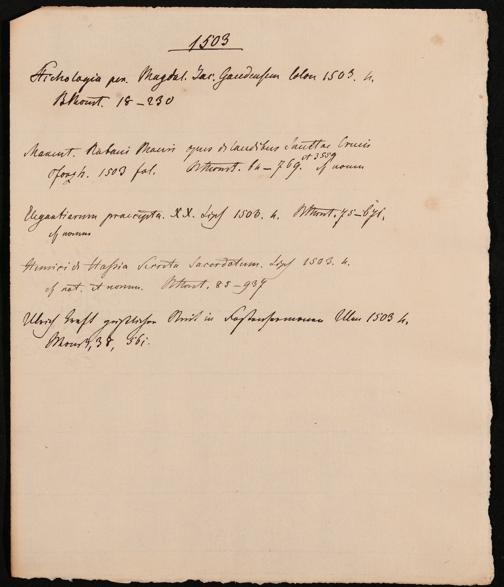 1503
Stichologia per. Magdal. Jac. Gaudensem Colon 1503. 4.
BMonst. 18–230
Maxent. Rabani Mauri opus de laudibus Sanctae Crucis
Pforzh. 1503 fol. BMonst. 64–769. et 3559 cf nomm
Elegantiarum praecepta. XX. Lips 1503. 4. BMonst. 75–671.
cf nomm
Henrici de Hassia Secreta Sacerdotum. Lips 1503. 4.
cf not. et nomm. BMonst. 85–939
Ulrich Kraft geistlicher Streit in Fastensermonen Ulm 1503 4.
Monst. 38, 561.